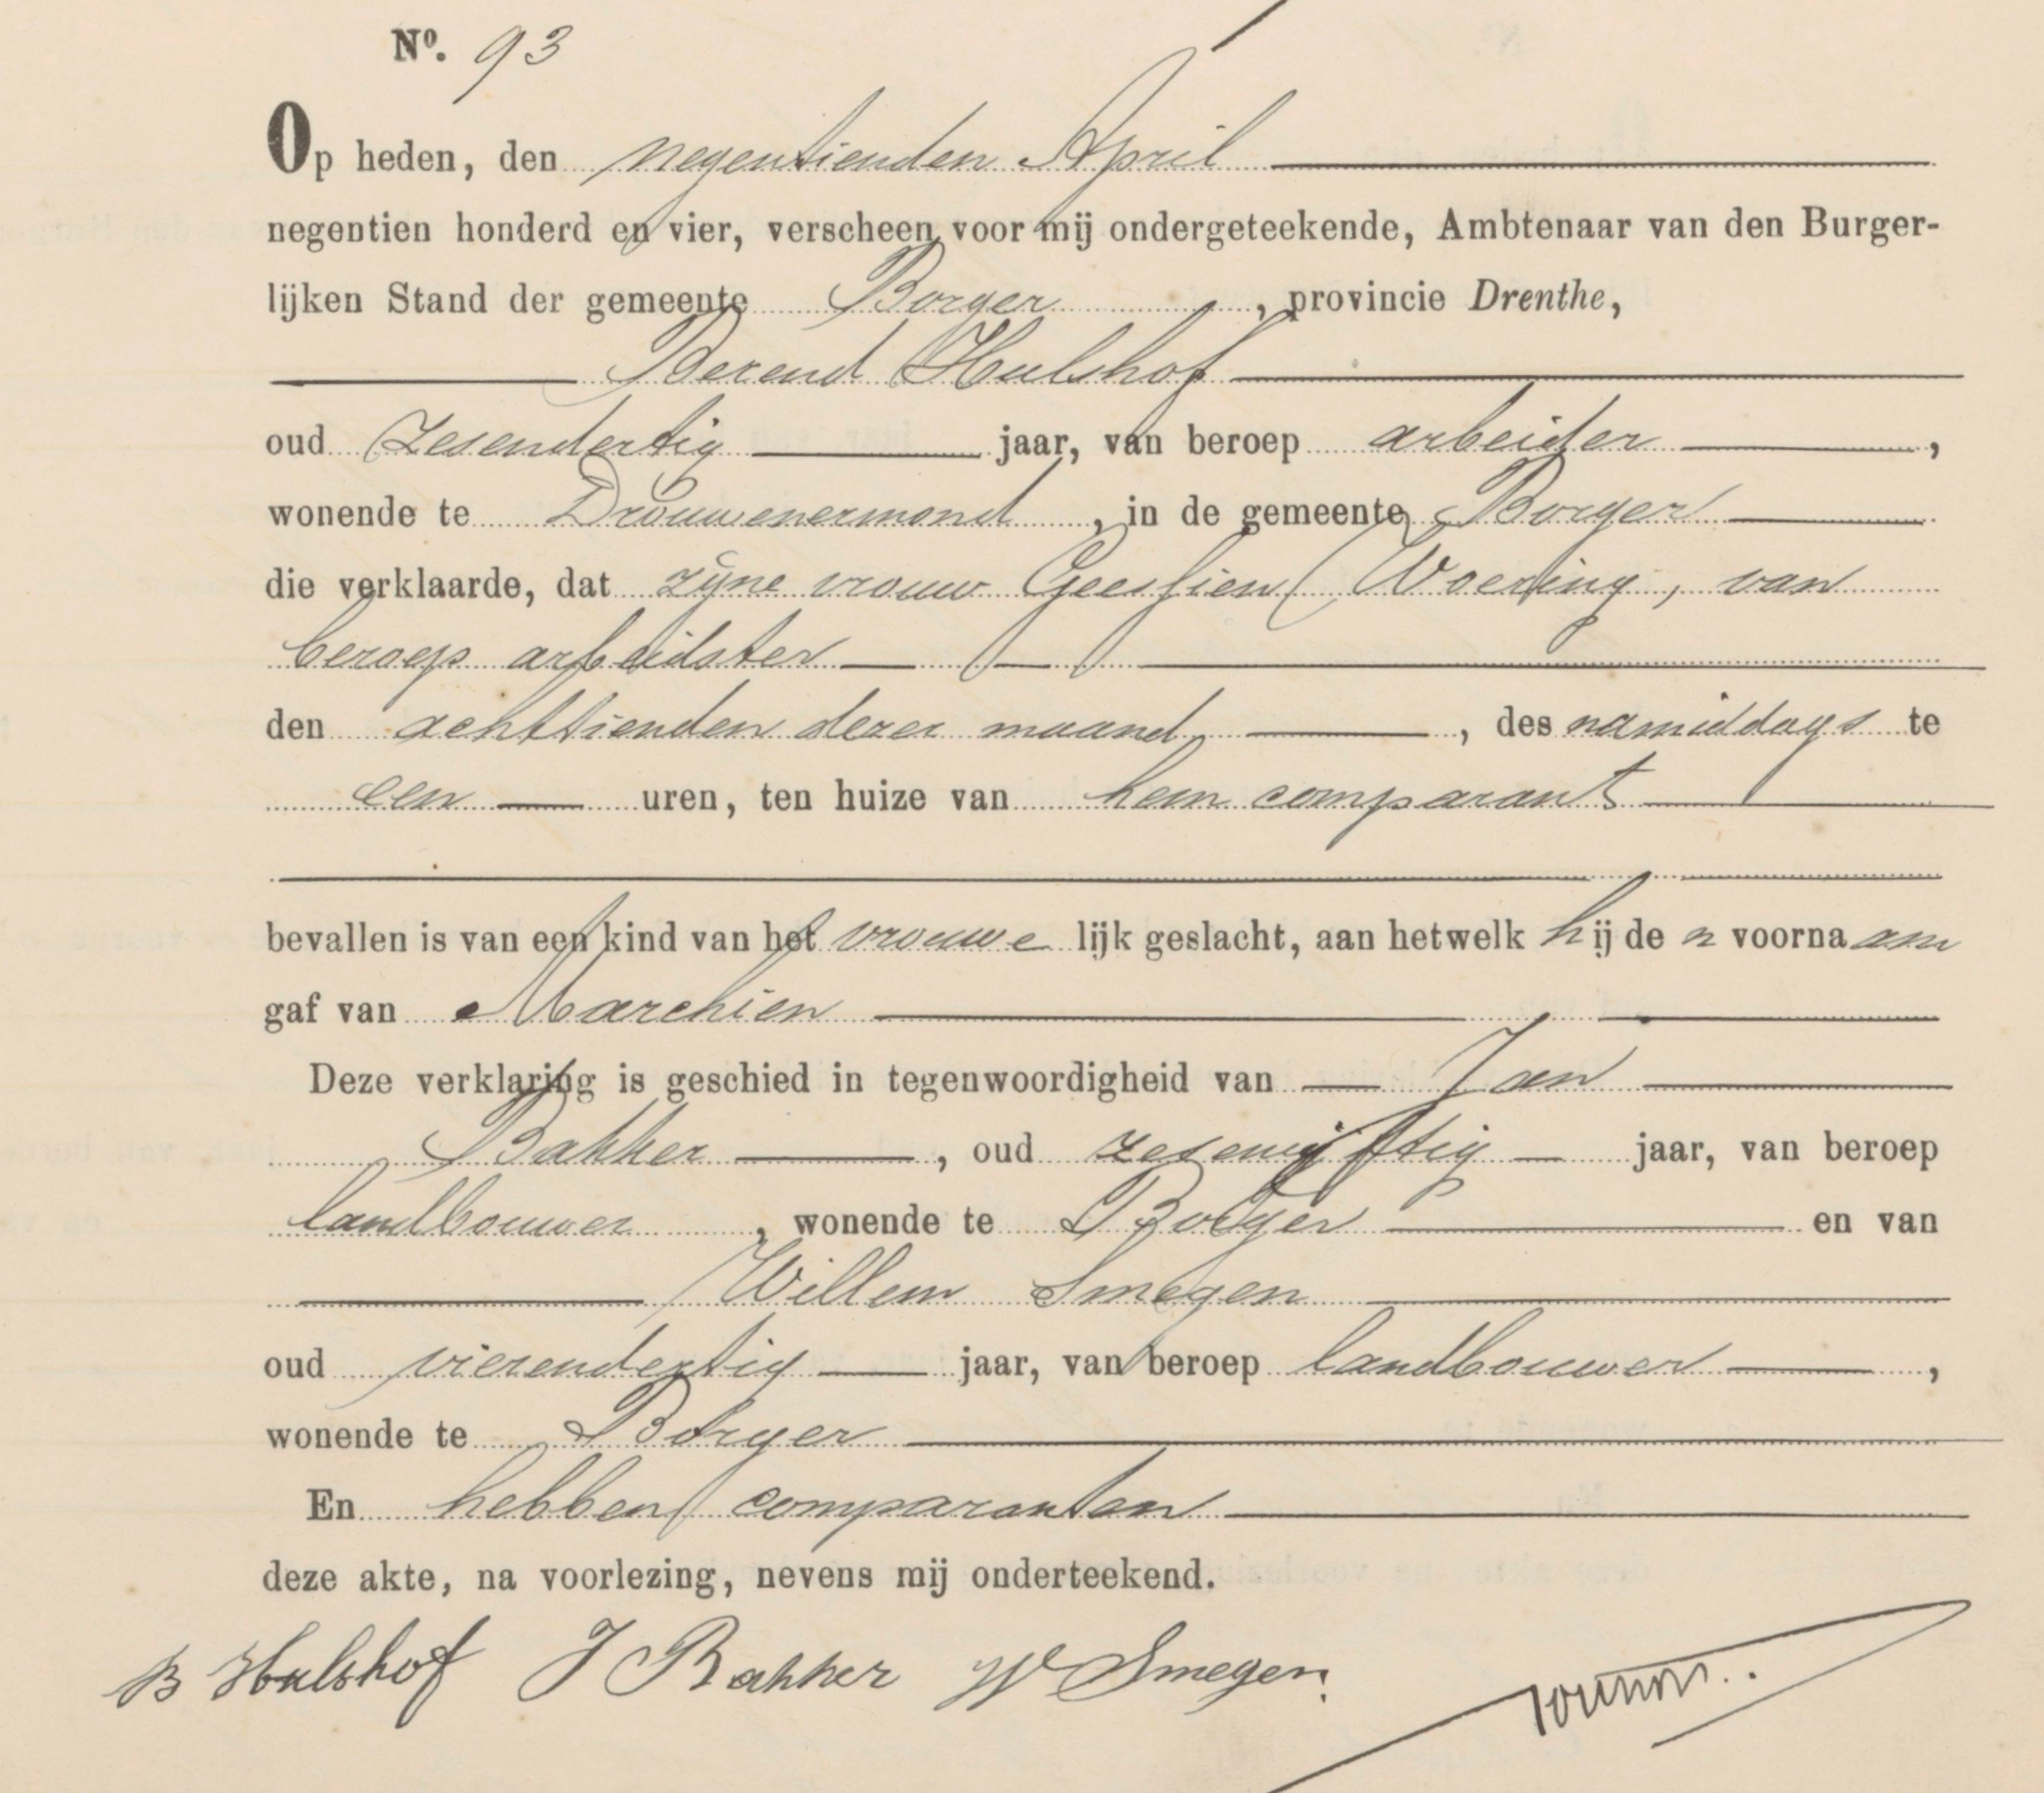 Nº. 93
Op heden, den negentienden April
negentien honderd en vier, verscheen voor mij ondergeteekende, Ambtenaar van den Burger-
lijken Stand der gemeente Borger, provincie Drenthe,
Berend Hulshof
oud zesendertig jaar, van beroep arbeider,
wonende te Drouwenermond, in de gemeente Borger
die verklaarde, dat zijne vrouw Geessien Woering, van
beroep arbeidster
den achttienden dezer maand, des namiddags te
een uren, ten huize van hem comparant
bevallen is van een kind van het vrouwelijk geslacht, aan hetwelk hij den voornaam
gaf van Marchien
Deze verklaring is geschied in tegenwoordigheid van Jan
Bakker, oud zesenvijftig jaar, van beroep
landbouwer, wonende te Borger en van
Willem Smegen
oud vierendertig jaar, van beroep landbouwer,
wonende te Borger
En hebben comparanten
deze akte, na voorlezing, nevens mij onderteekend.
B Hulshof J Bakker W Smegen